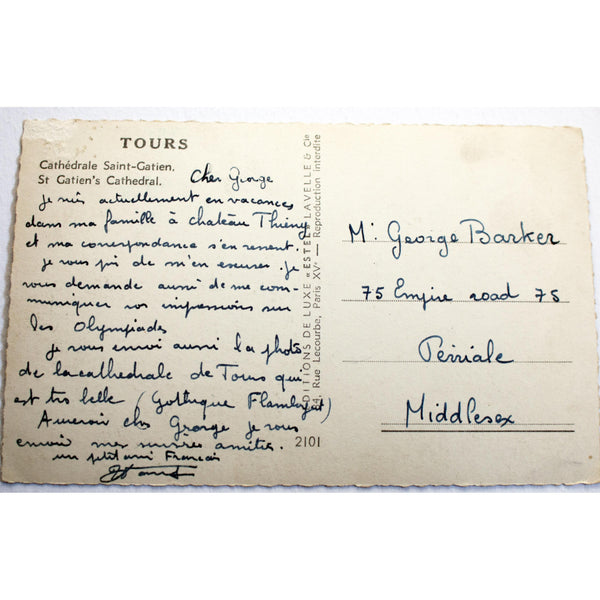 TOURS
Cathédrale Saint-Gatien.
St Gatien's Cathedral.
Cher George
je suis actuellement en vacances
dans ma famille à chateau Thierry
et ma correspondance s'en ressent.
je vous pri de m'en excuser. je
vous demande aussi de me com-
muniquer vos impressions sur
les Olympiades
je vous envoi aussi la photo
de la cathedrale de Tours qui
est très belle (Gothique Flamboyant)
Aurevoir cher George je vous
envoi mes sincères amitiés.
un petit ami Francais
EDITIONS DE LUXE «ESTEL» LAVELLE & Cie
, Rue Lecourbe, Paris XVe — Reproduction interdite
2101
Mr George Barker
75 Empire road 75
Perriale
Middlesex